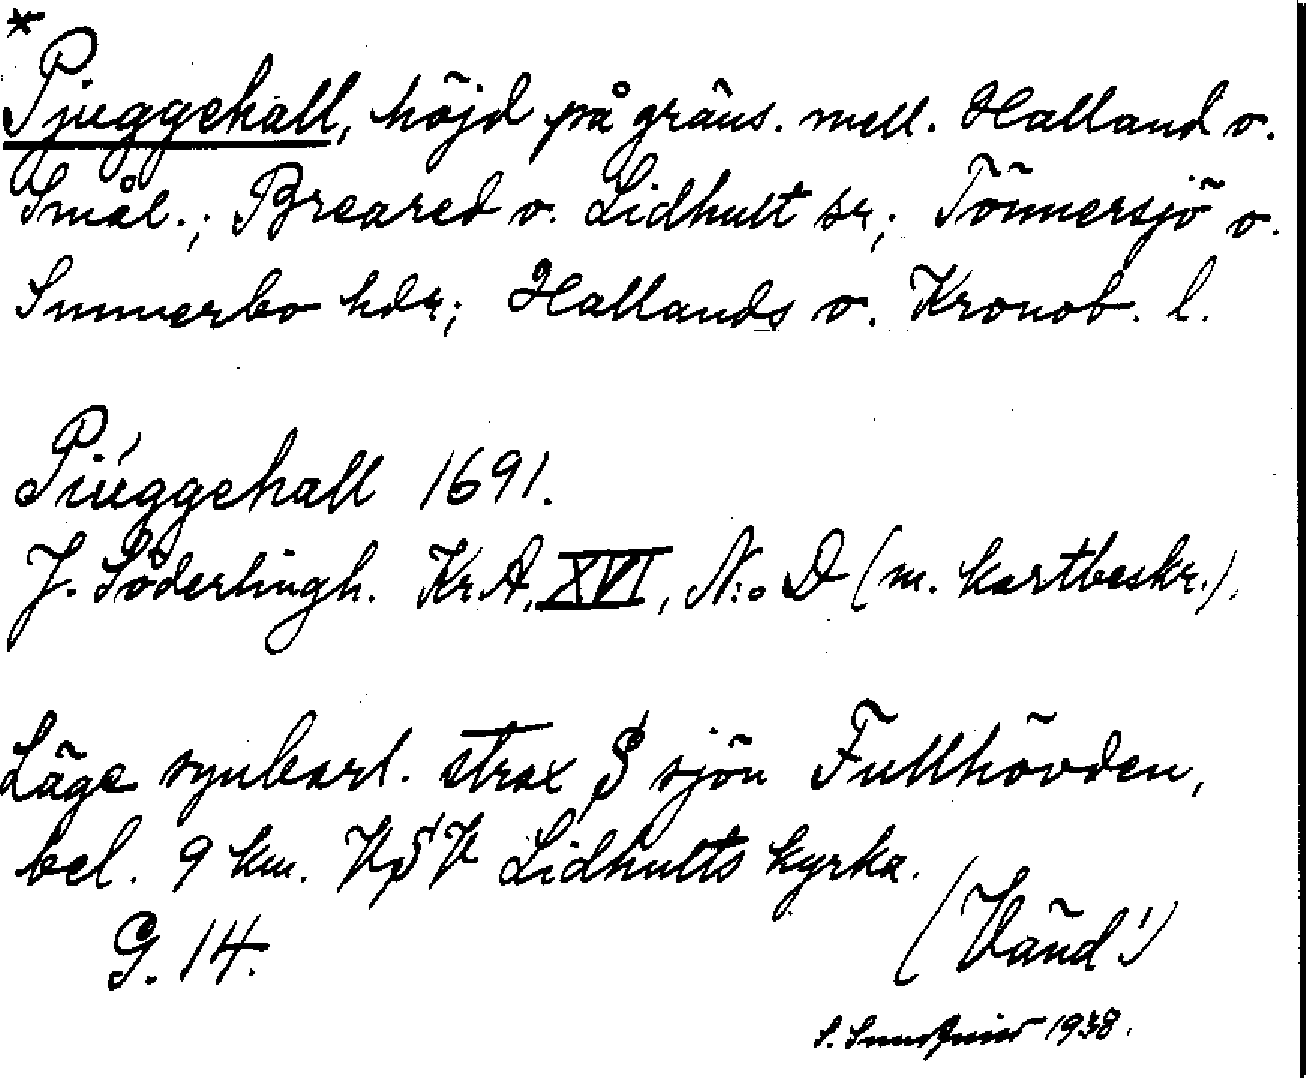 *
Pjuggehall, höjd på gräns. mell. Halland o.
Smål.; Breared o. Lidhult sr; Tönnersjö o.
Sunnerbo hdr; Hallands o. Kronob. l.
Piúggehall 1691.
J. Söderlingh. Kr. A. XVI, N:o D (m. kartbeskr.).
Läge synbarl. strax § sjön Fullhövden,
bel. 9 km. V§V Lidhults kyrka.
G. 14.
(Vänd!)
S. 1938.